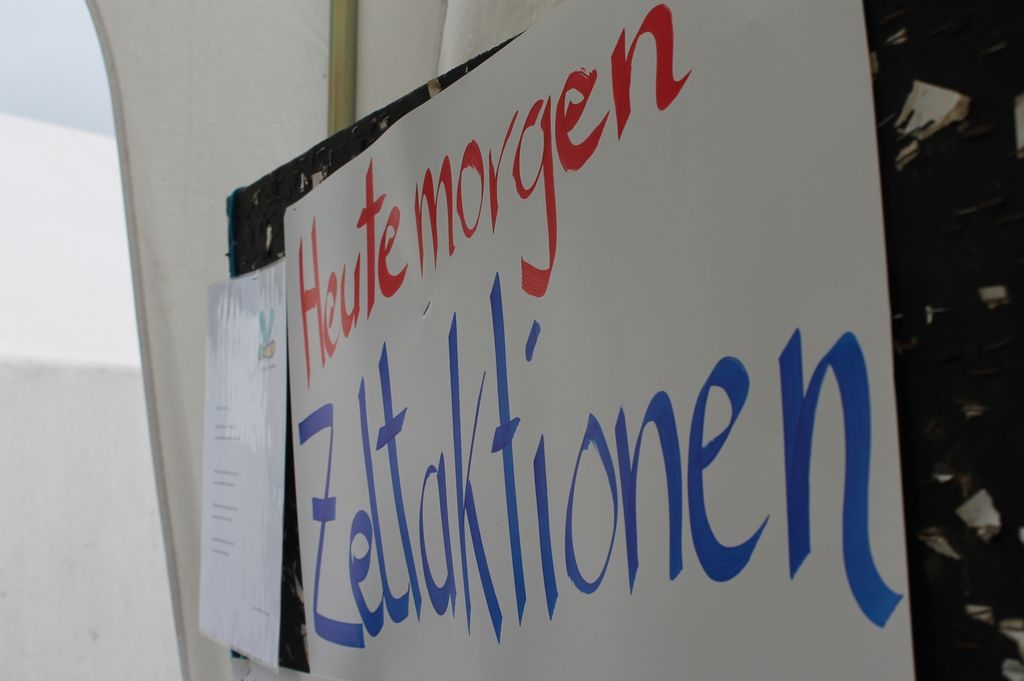 Heute morgen
Zeltaktionen